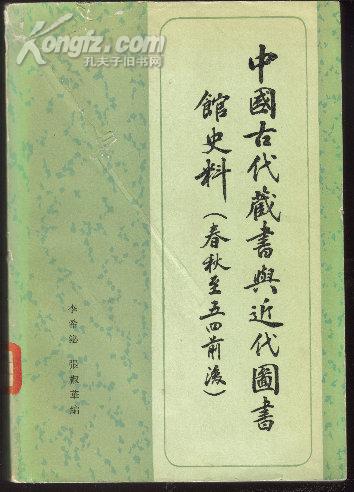 Kongfz.com
孔夫子旧书网
中國古代藏書與近代圖書
館史料（春秋至五四前後）
李希泌 張椒華編